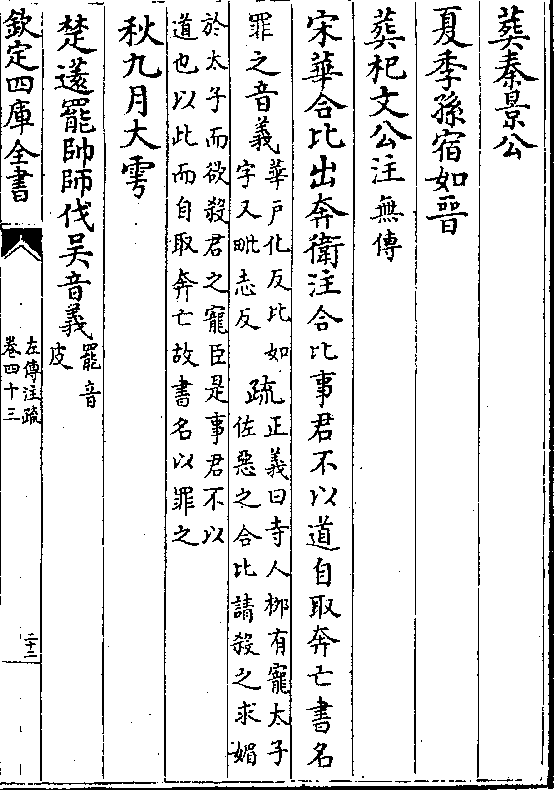 葬秦景公
夏季孫宿如晉
葬杞文公注無傳
宋華合比出奔衛注合比事君不以道自取奔亡書名
罪之音義華戶化反比如
字又毗志反
疏正義曰寺人栁有寵太子
佐惡之合比請殺之求媚
於太子而欲殺君之寵臣是事君不以
道也以此而自取奔亡故書名以罪之
秋九月大雩
楚薳罷帥師伐吴音義罷音
皮
欽定四庫全書
左傳注疏
卷四十三
二十二